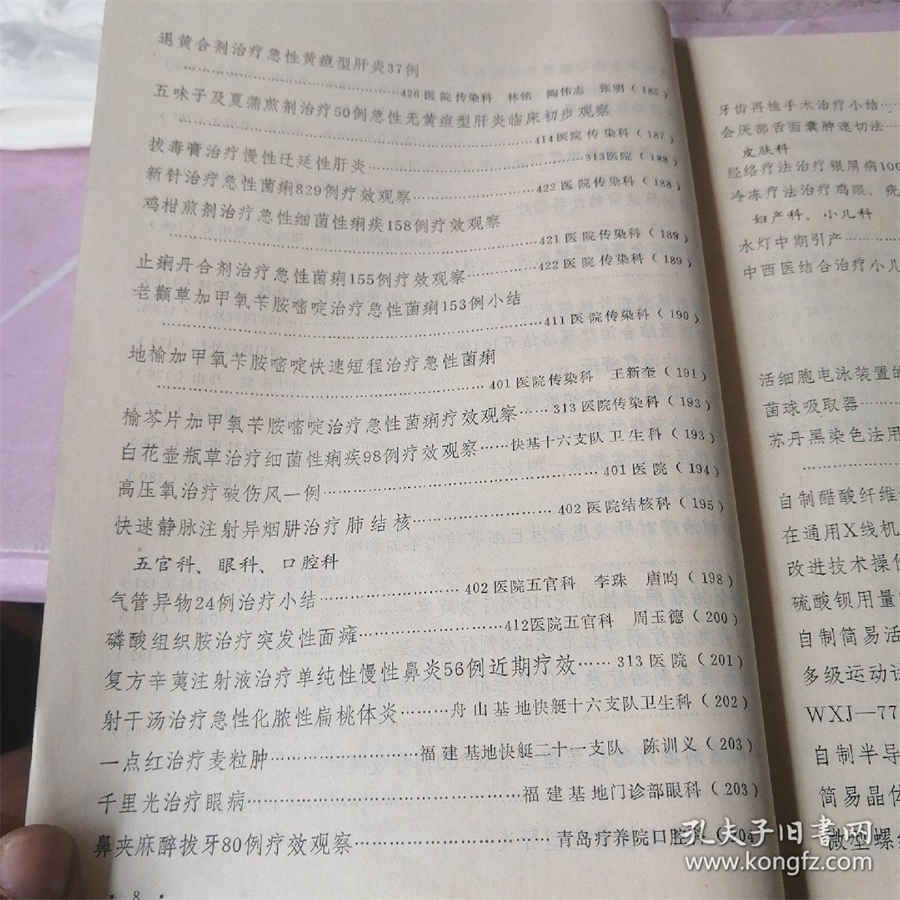 退黄合剂治疗急性黄疸型肝炎37例
………………………426医院传染科 林佑 陶伟志 张明（182）
五味子及夏蒲煎剂治疗50例急性无黄疸型肝炎临床初步观察
………………………414医院传染科（187）
拔毒膏治疗慢性迁延性肝炎………………………313医院（188）
新针治疗急性菌痢829例疗效观察……………422医院传染科（188）
鸡柑煎剂治疗急性细菌性痢疾158例疗效观察
………………………421医院传染科（189）
止痢丹合剂治疗急性菌痢155例疗效观察………422医院传染科（189）
老颧草加甲氧苄胺嘧啶治疗急性菌痢153例小结
………………………411医院传染科（190）
地榆加甲氧苄胺嘧啶快速短程治疗急性菌痢
………………………401医院传染科 王新奎（191）
榆芩片加甲氧苄胺嘧啶治疗急性菌痢疗效观察……313医院传染科（193）
白花壶瓶草治疗细菌性痢疾98例疗效观察……快基十六支队卫生科（193）
高压氧治疗破伤风一例………………………401医院（194）
快速静脉注射异烟肼治疗肺结核………………402医院结核科（195）
五官科、眼科、口腔科
气管异物24例治疗小结………………402医院五官科 李珠 唐昀（198）
磷酸组织胺治疗突发性面瘫………………412医院五官科 周玉德（200）
复方辛荑注射液治疗单纯性慢性鼻炎56例近期疗效……313医院（201）
射干汤治疗急性化脓性扁桃体炎……舟山基地快艇十六支队卫生科（202）
一点红治疗麦粒肿………………福建基地快艇二十一支队 陈训义（203）
千里光治疗眼病………………………福建基地门诊部眼科（203）
鼻夹麻醉拔牙80例疗效观察………………青岛疗养院口腔科（204）
· 8 ·
牙齿再植手术治疗小结
会厌部舌面囊肿速切法
皮肤科
经络疗法治疗银屑病100
冷冻疗法治疗鸡眼、疣
妇产科、小儿科
水灯中期引产
中西医结合治疗小儿
活细胞电泳装置的
菌球吸取器
苏丹黑染色法用
自制醋酸纤维
在通用X线机
改进技术操作
硫酸钡用量
自制简易活
多级运动试
WXJ—77
自制半导
简易晶体
微型螺
孔夫子旧书网
www.kongfz.com